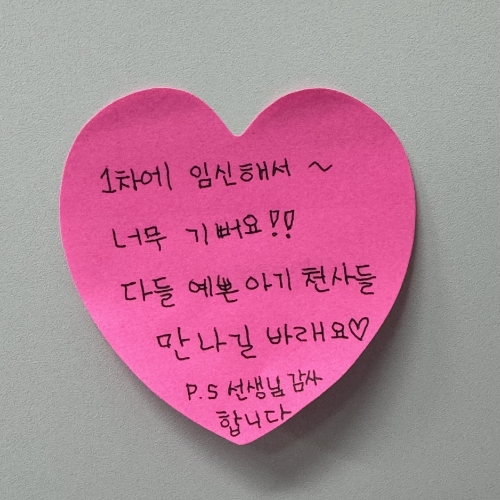 1차에 임신해서 ~
너무 기뻐요!!
다들 예쁜 아기 천사들
만나길 바래요♡
P.S 선생님 감사
합니다